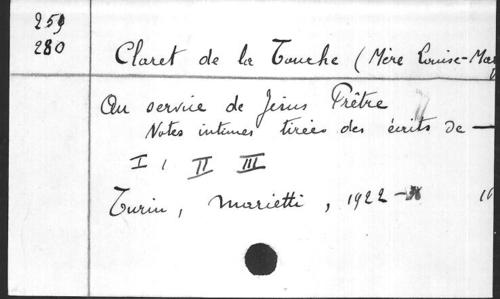 259
280
Claret de la Touche (Mère Louise-Mar
Au service de Jésus Prêtre
Notes intimes tirées des écrits de —
I, II III
Turin, Marietti, 1922 -